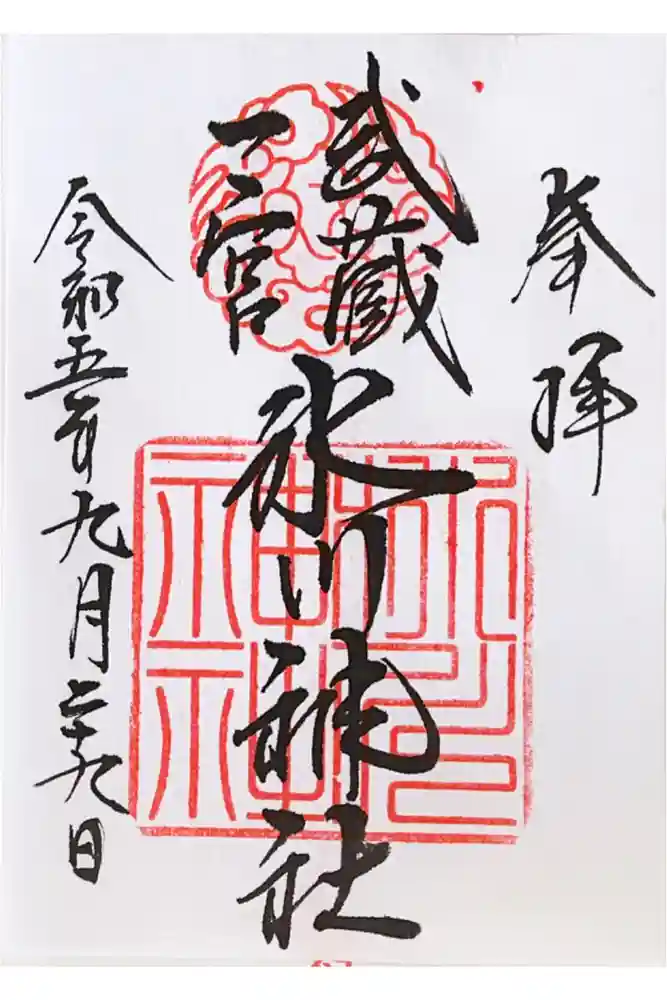 奉拝
武蔵
一宮
氷川神社
令和五年九月二十九日